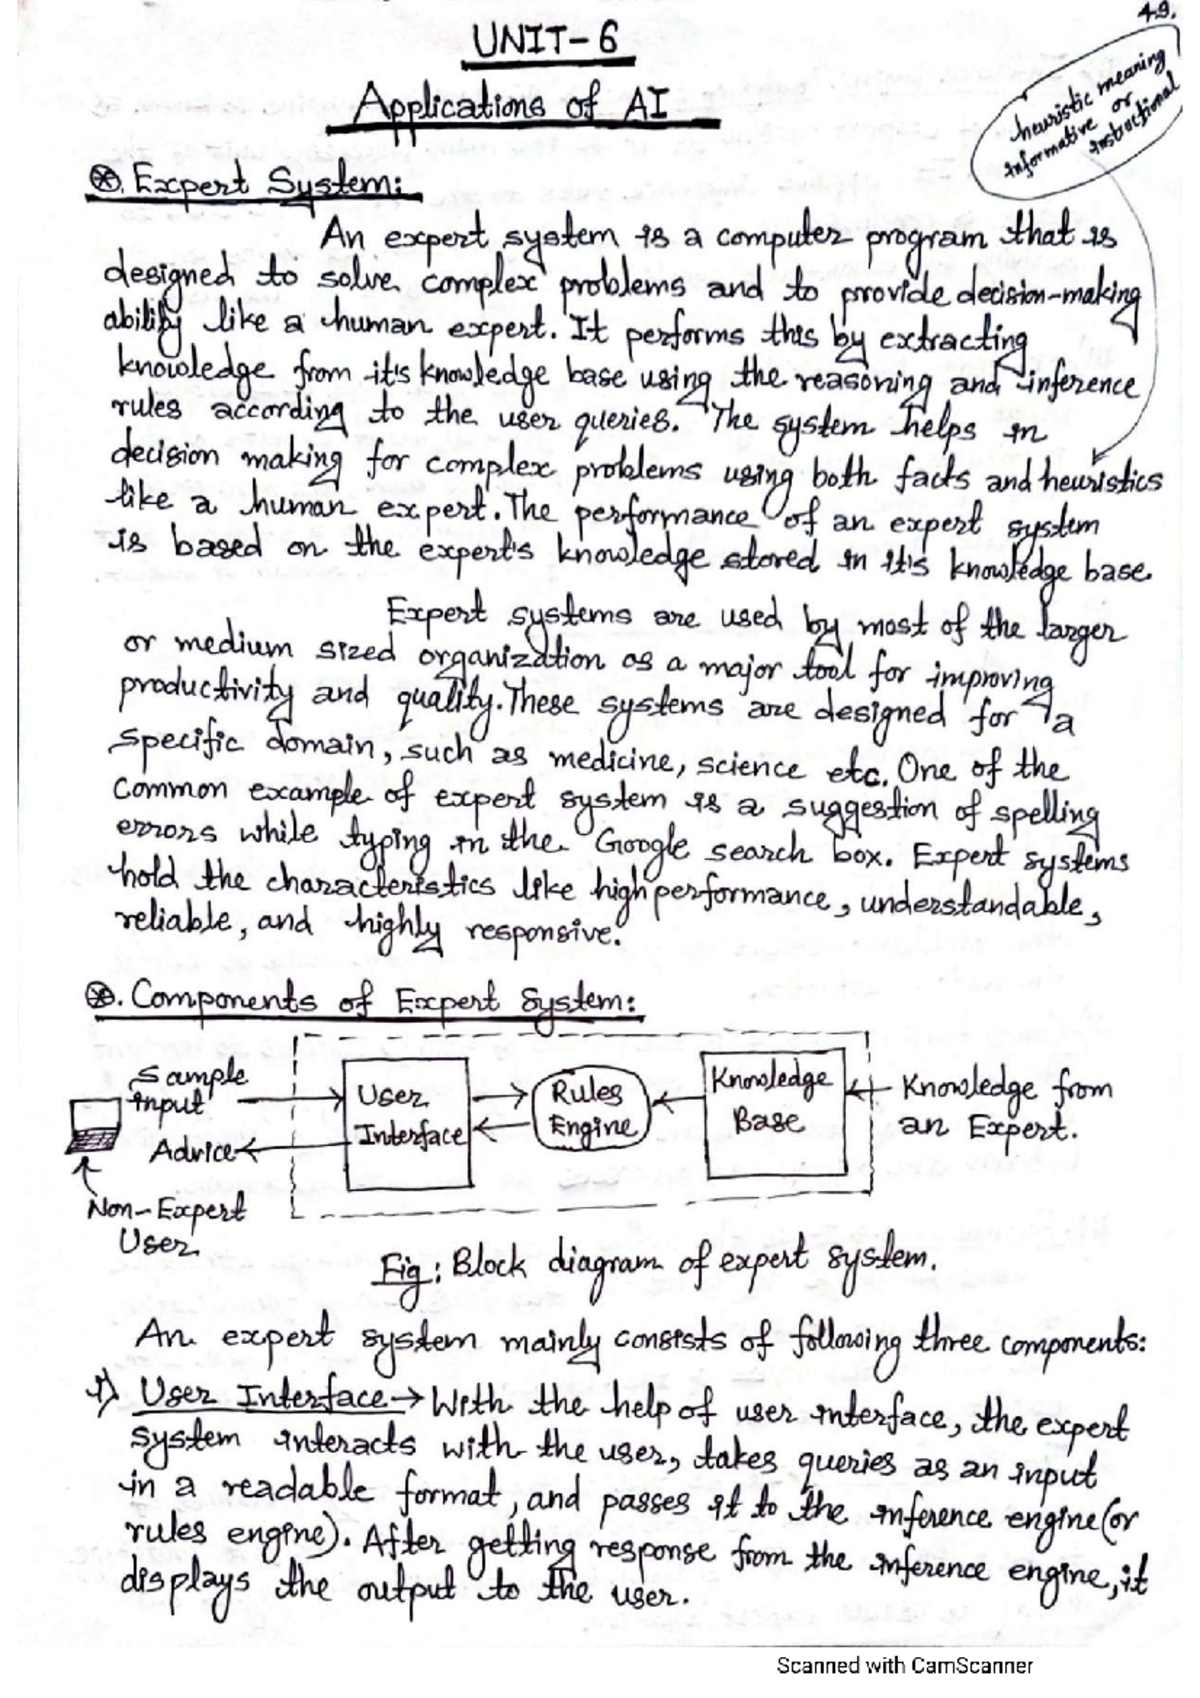 49.
UNIT-6
Applications of AI
heuristic meaning
informative or
instructional
⊛. Expert System:
An expert system is a computer program that is
designed to solve complex problems and to provide decision-making
ability like a human expert. It performs this by extracting
knowledge from it's knowledge base using the reasoning and inference
rules according to the user queries. The system helps in
decision making for complex problems using both facts and heuristics
like a human expert. The performance of an expert system
is based on the expert's knowledge stored in it's knowledge base.
Expert systems are used by most of the larger
or medium sized organization as a major tool for improving
productivity and quality. These systems are designed for a
specific domain, such as medicine, science etc. One of the
common example of expert system is a suggestion of spelling
errors while typing in the Google search box. Expert systems
hold the characteristics like high performance, understandable,
reliable, and highly responsive.
⊛. Components of Expert System:
Sample
input
Advice
Non-Expert
User
User
Interface
Rules
Engine
Knowledge
Base
Knowledge from
an Expert.
Fig: Block diagram of expert system.
An expert system mainly consists of following three components:
1) User Interface → With the help of user interface, the expert
system interacts with the user, takes queries as an input
in a readable format, and passes it to the inference engine (or
rules engine). After getting response from the inference engine, it
displays the output to the user.
Scanned with CamScanner